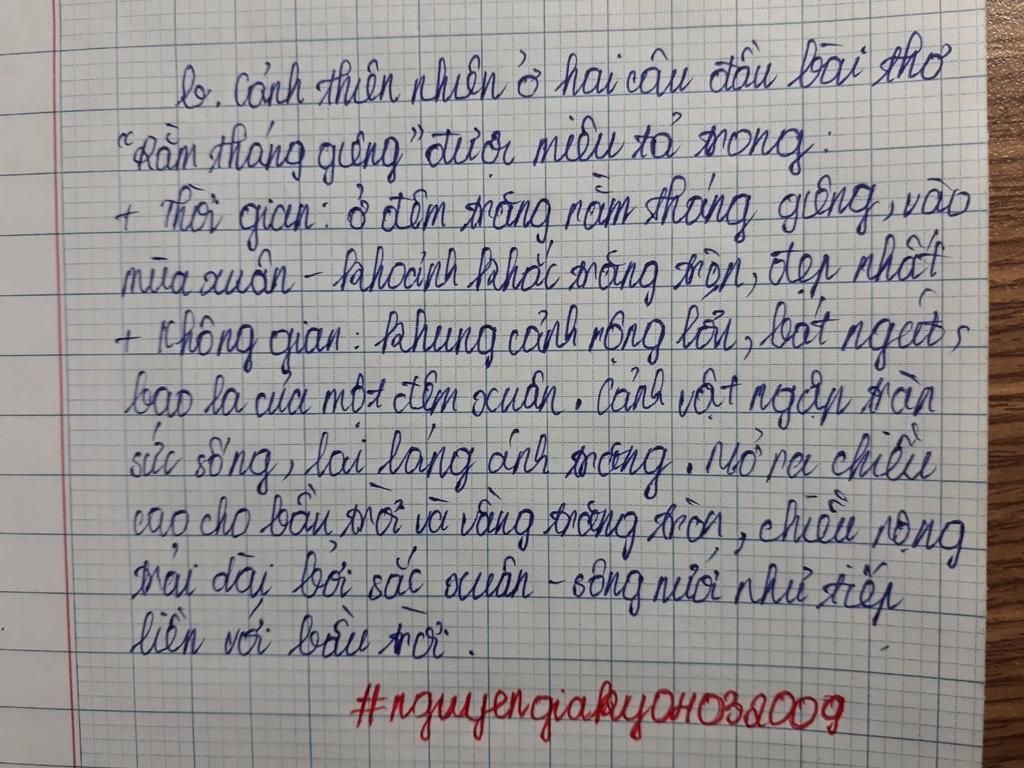 b. Cảnh thiên nhiên ở hai câu đầu bài thơ
"Rằm tháng giêng" được miêu tả trong:
+ Thời gian: ở đêm trăng rằm tháng giêng, vào
mùa xuân - khoảnh khắc trăng tròn, đẹp nhất
+ Không gian: khung cảnh rộng lớn, bát ngát,
bao la của một đêm xuân. Cảnh vật ngập tràn
sức sống, lai láng ánh trăng. Mở ra chiều
cao cho bầu trời và vầng trăng tròn, chiều rộng
trải dài bởi sắc xuân - sông nước như tiếp
liền với bầu trời.
#nguyengiahuy04032009